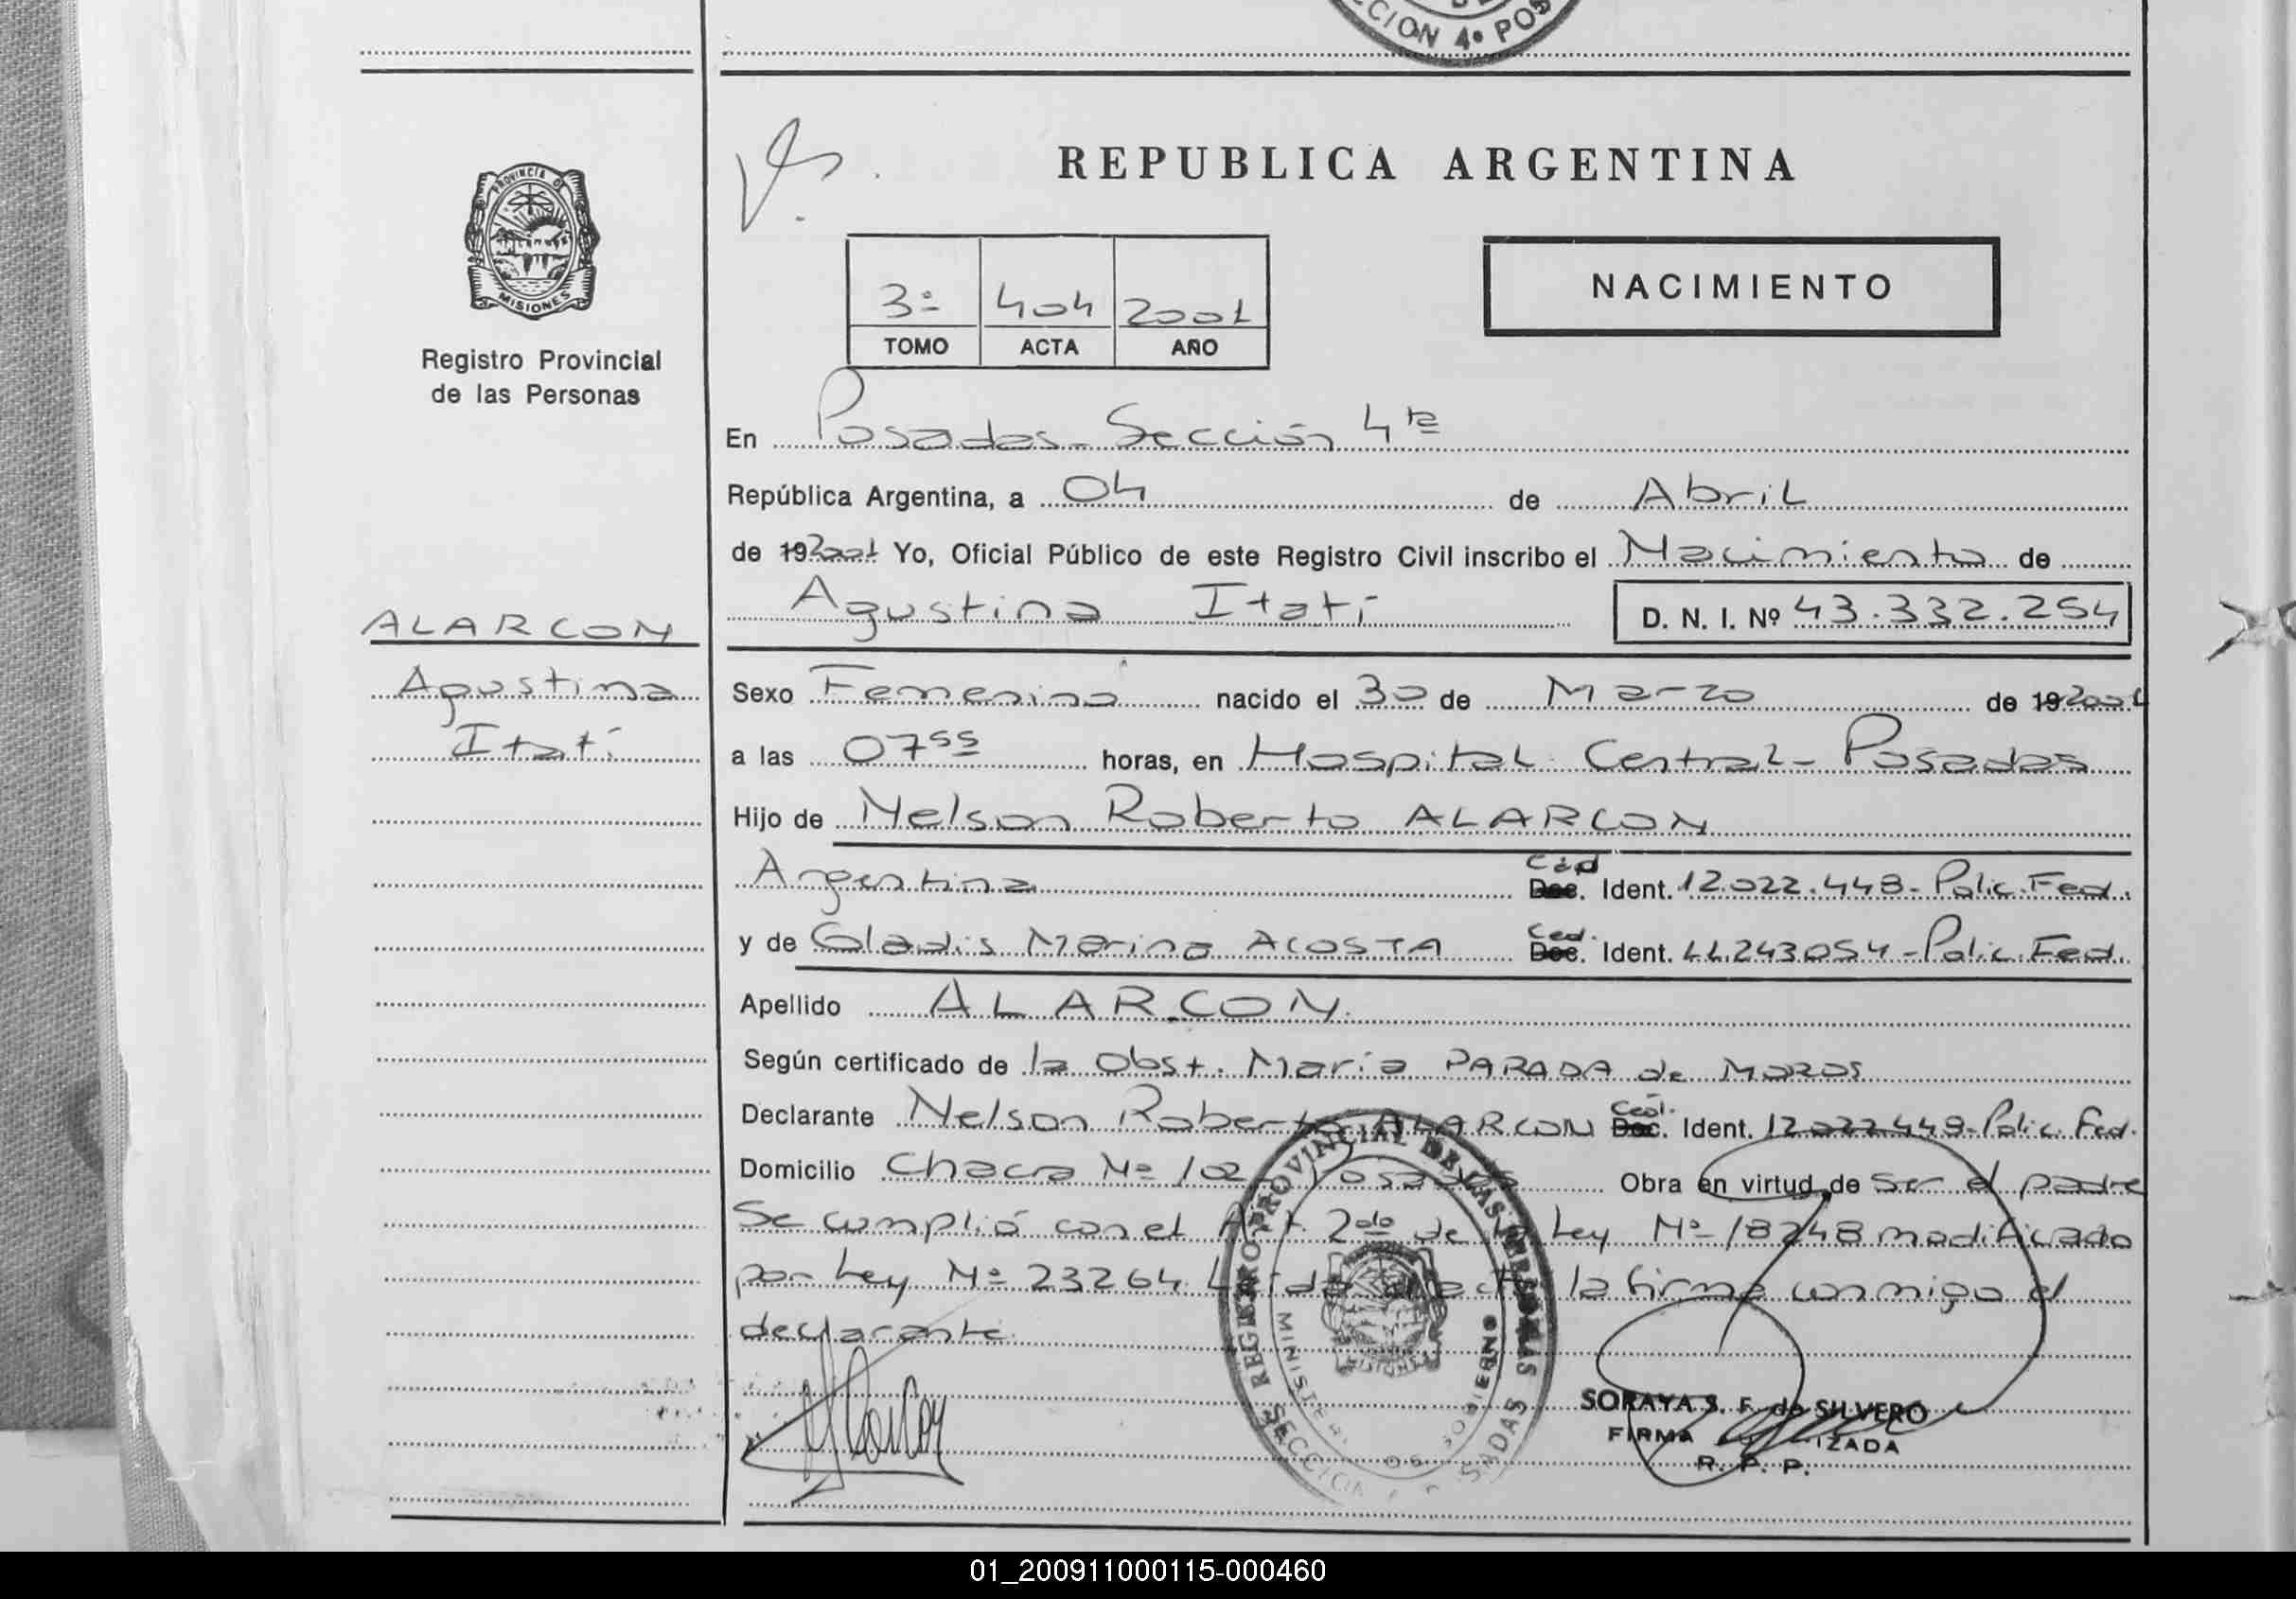 CCION 4ª POS
REPUBLICA ARGENTINA
PROVINCIA DE
MISIONES
NACIMIENTO
3º 404 2001
TOMO ACTA AÑO
Registro Provincial
de las Personas
En Posadas - Sección 4ta
República Argentina, a 04 de Abril
de 19 2001 Yo, Oficial Público de este Registro Civil inscribo el Nacimiento de
Agustina Itatí D. N. I. Nº 43.332.254
ALARCON
Agustina
Itatí
Sexo Femenino nacido el 30 de Marzo de 19 2001
a las 07 55 horas, en Hospital Central - Posadas
Hijo de Nelson Roberto ALARCON
Argentina Céd Doc. Ident. 12.022.448 - Polic. Fed.
y de Gladis Marina ACOSTA Ced. Doc. Ident. 11.243054 - Polic. Fed.
Apellido ALARCON.
Según certificado de la Obst. María PARADA de MOROS
Declarante Nelson Roberto ALARCON Ced. Doc. Ident. 12022448 - Polic. Fed.
Domicilio Chacra Nº 102 Posadas Obra en virtud de Ser el padre
Se cumplió con el Art. 2do de la Ley Nº 18248 modificado
por Ley Nº 23264. Leída el acta la firma conmigo el
declarante.
REGISTRO PROVINCIAL DE LAS PERSONAS
MINISTERIO DE GOBIERNO
MISIONES
SECCION POSADAS
SORAYA S. F. de SILVERO
FIRMA
R. P. P.
01_200911000115-000460